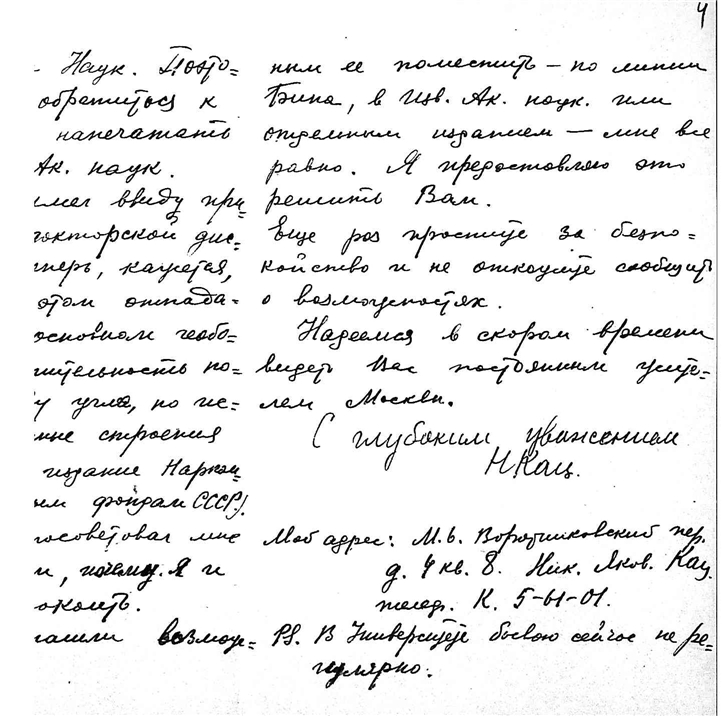 4
- Наук. Поэто=
обратиться к
напечатать
Ак. наук.
имел ввиду при=
докторской дис=
теперь, кажется,
этом отпада=
основном геобо=
чительность по=
у угля, но не=
строения
издание Нарком=
ым фондам СССР).
посоветовал мне
и, почему я и
окоить.
нашли возмож=
ным ее поместить — по линии
Бина, в Изв. Ак. наук. или
отдельным изданием — мне все
равно. Я предоставляю это
решить Вам.
Еще раз простите за безпо=
койство и не откажите сообщить
о возможностях.
Надеемся в скором времени
видеть Вас постоянным жите=
лем Москвы.
С глубоким уважением
НКац.
Мой адрес: М.б. Воротниковский пер.
д. 4 кв. 8. Ник. Яков. Кац.
телеф. К. 5-61-01.
PS. В Университете бываю сейчас не ре=
гулярно.